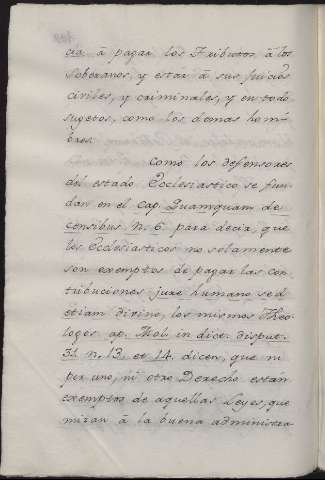 cia â pagar los Tributos, â los
Soberanos, y estar â sus juicios
civiles, y criminales, y en todo
sugetos, como los demas hom-
bres.
Como los defensores
del estado Ecclesiastico se fun-
dan en el cap. Quamquam de
censibus n. 6. para decir, que
los Ecclesiasticos no solamente
son exemptos de pagar las con-
tribuciones jure humano, sed
etiam divino, los mismos Theo-
logos ap. Mol. in dict. disput.
31. n. 13. et 14. dicen, que ni
por uno, ni otro Derecho estàn
exemptos de aquellas Leyes, que
miran â la buena administra